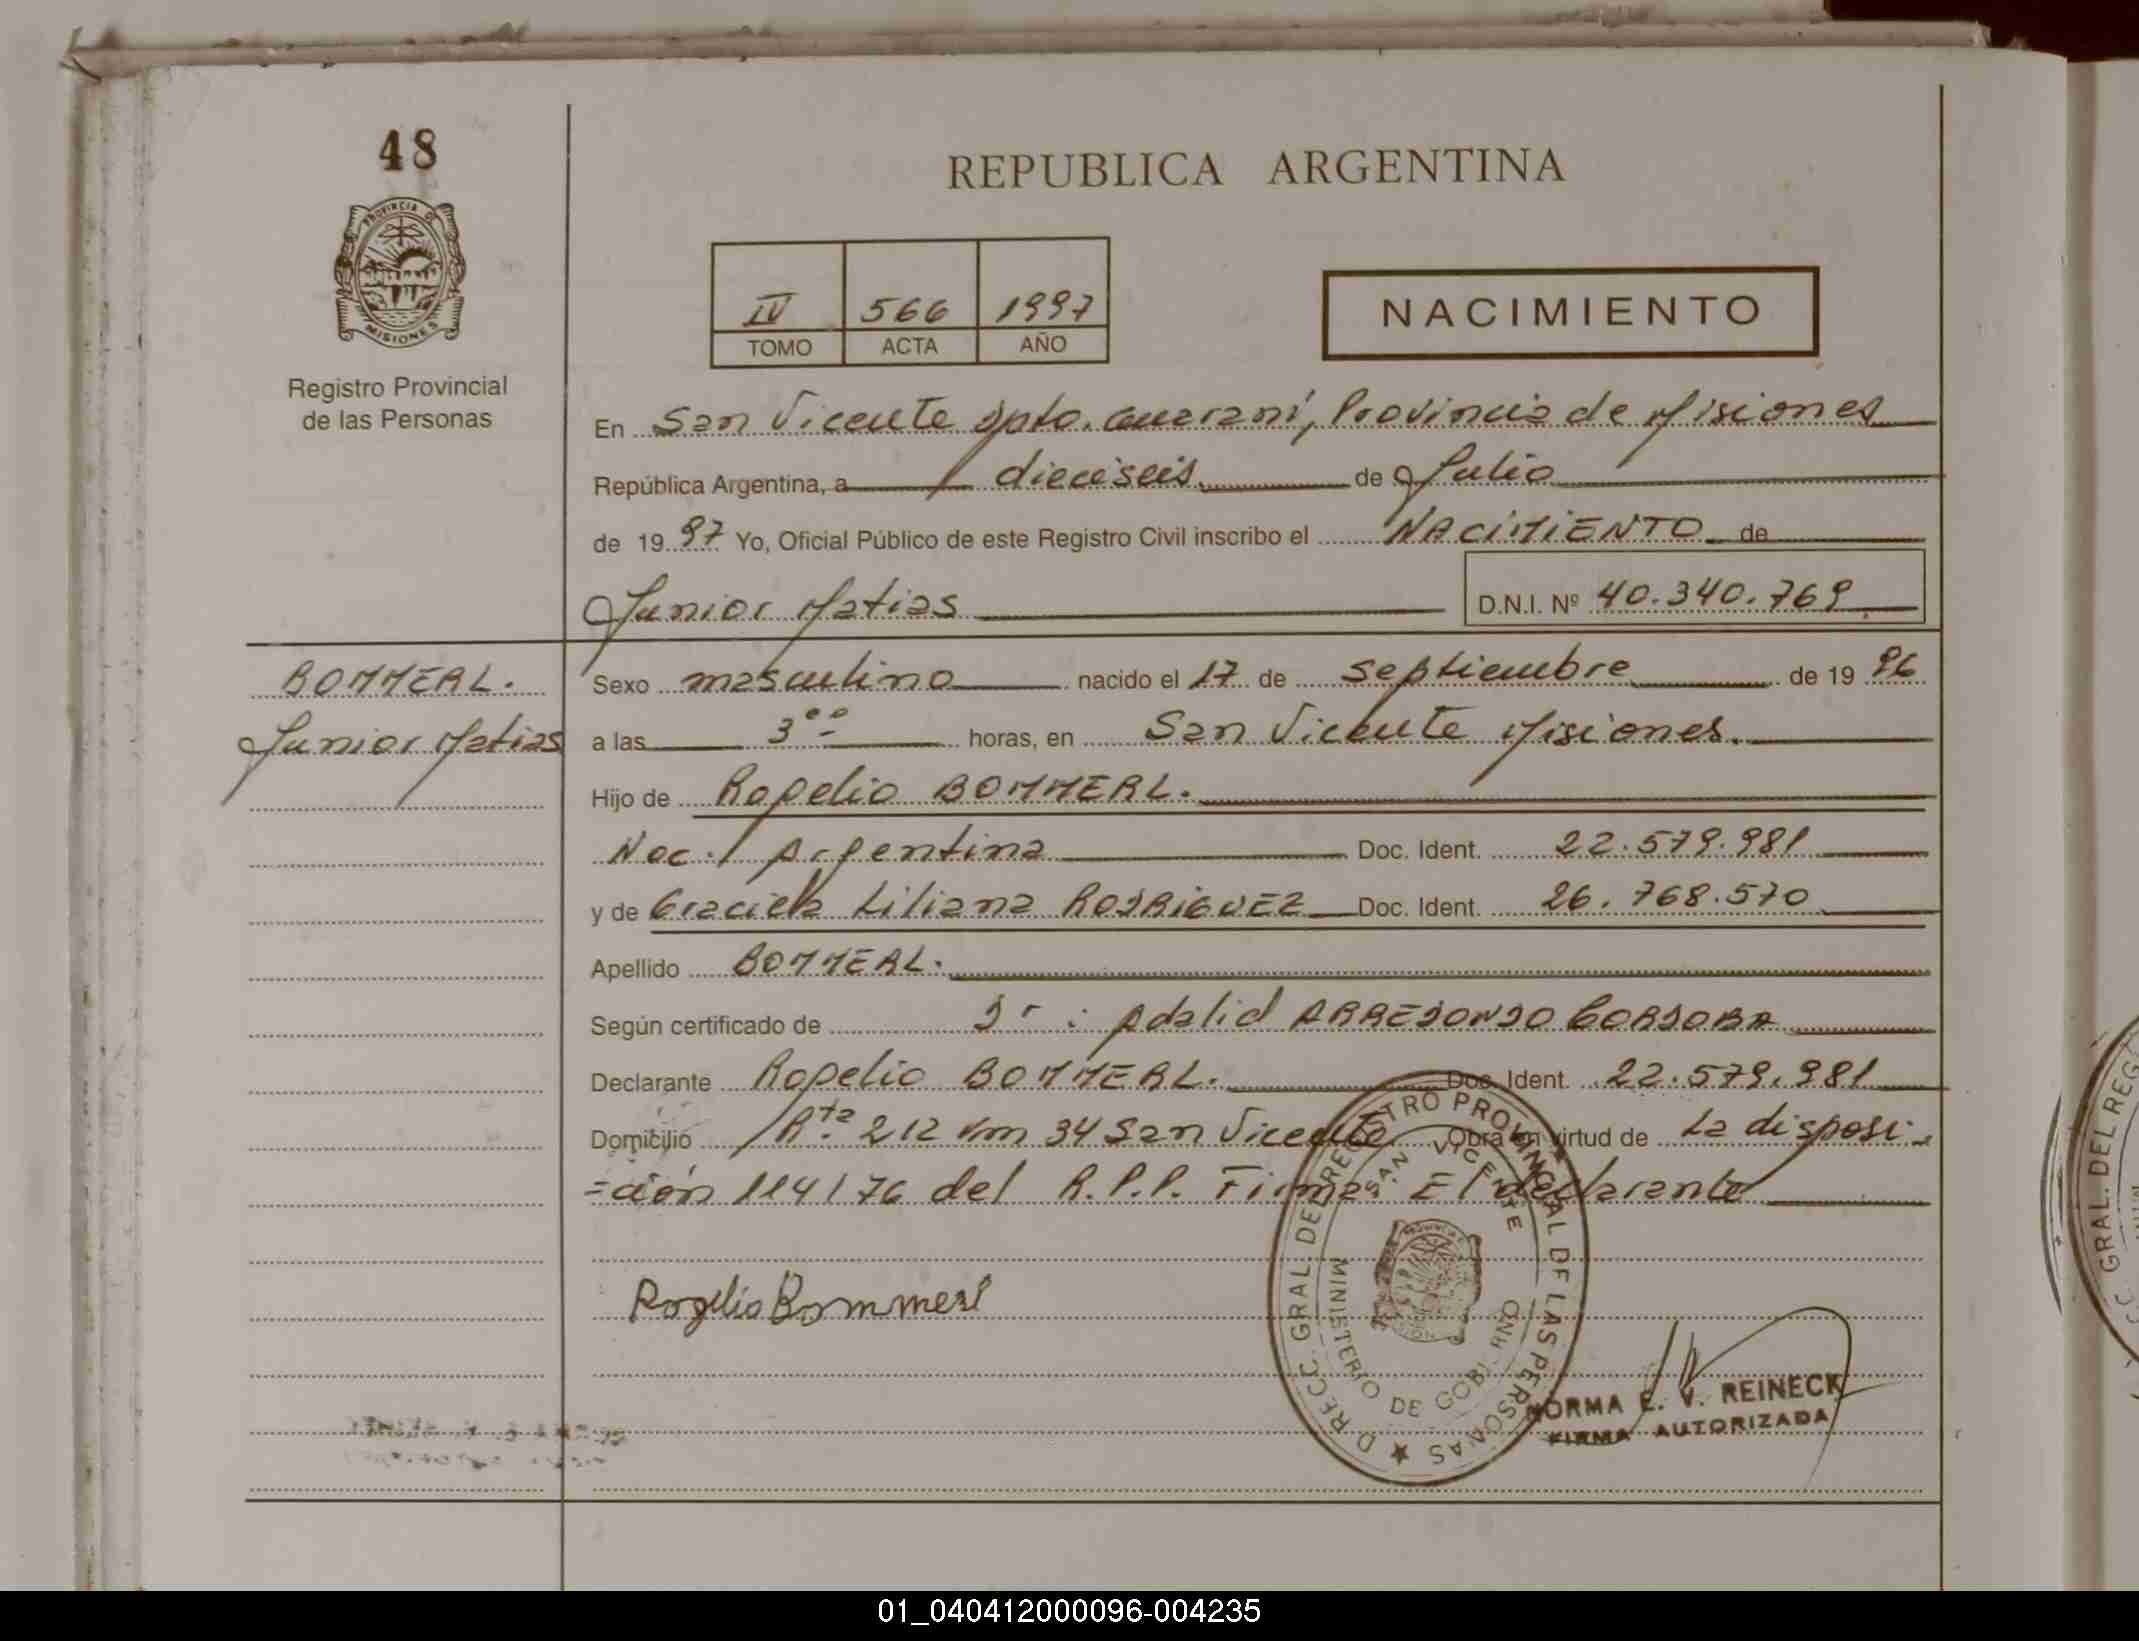 48
REPUBLICA ARGENTINA
PROVINCIA DE MISIONES
Registro Provincial
de las Personas
IV 566 1997
TOMO ACTA AÑO
NACIMIENTO
En San Vicente Dpto. Guaraní, Provincia de Misiones
República Argentina, a dieciseis de Julio
de 1997 Yo, Oficial Público de este Registro Civil inscribo el NACIMIENTO de
Junior Matias D.N.I. Nº 40.340.769
BOMMERL.
Junior Matias
Sexo masculino nacido el 17 de septiembre de 1996
a las 3°° horas, en San Vicente Misiones.
Hijo de Rogelio BOMMERL.
Nac. Argentina Doc. Ident. 22.579.981
y de Graciela Liliana RODRIGUEZ Doc. Ident. 26.768.570
Apellido BOMMERL.
Según certificado de Dr: Adalid ARREDONDO CORDOBA
Declarante Rogelio BOMMERL. Doc. Ident. 22.579.981
Domicilio Rta. 212 Km 34 San Vicente Obra en virtud de La disposi-
=ción 114/76 del R.P.P. Firma: El declarante
Rogelio Bommerl
DIRECC. GRAL. DEL REGISTRO PROVINCIAL DE LAS PERSONAS
SAN VICENTE
MINISTERIO DE GOBIERNO
NORMA E. V. REINECK
FIRMA AUTORIZADA
GRAL. DEL REG
01_040412000096-004235